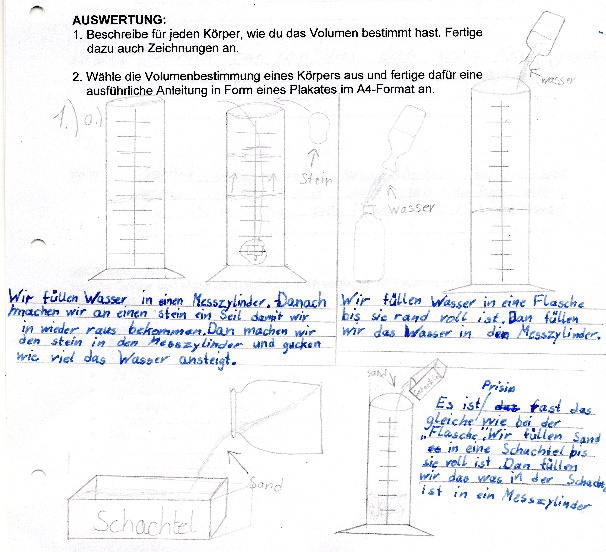 AUSWERTUNG:
1. Beschreibe für jeden Körper, wie du das Volumen bestimmt hast. Fertige
dazu auch Zeichnungen an.
2. Wähle die Volumenbestimmung eines Körpers aus und fertige dafür eine
ausführliche Anleitung in Form eines Plakates im A4-Format an.
1.) a.)
Stein
wasser
wasser
Wir füllen Wasser in einen Messzylinder. Danach
machen wir an einen stein ein Seil damit wir
in wieder raus bekommen. Dan machen wir
den stein in den Messzylinder und gucken
wie viel das Wasser ansteigt.
Wir füllen Wasser in eine Flasche
bis sie rand voll ist. Dan füllen
wir das Wasser in den Messzylinder.
Sand
Schachtel
sand
Schachtel
Prisip
Es ist fast das
gleiche wie bei der
„Flasche". Wir füllen Sand
in eine Schachtel bis
sie voll ist. Dan füllen
wir das was in der Schachtel
ist in ein Messzylinder